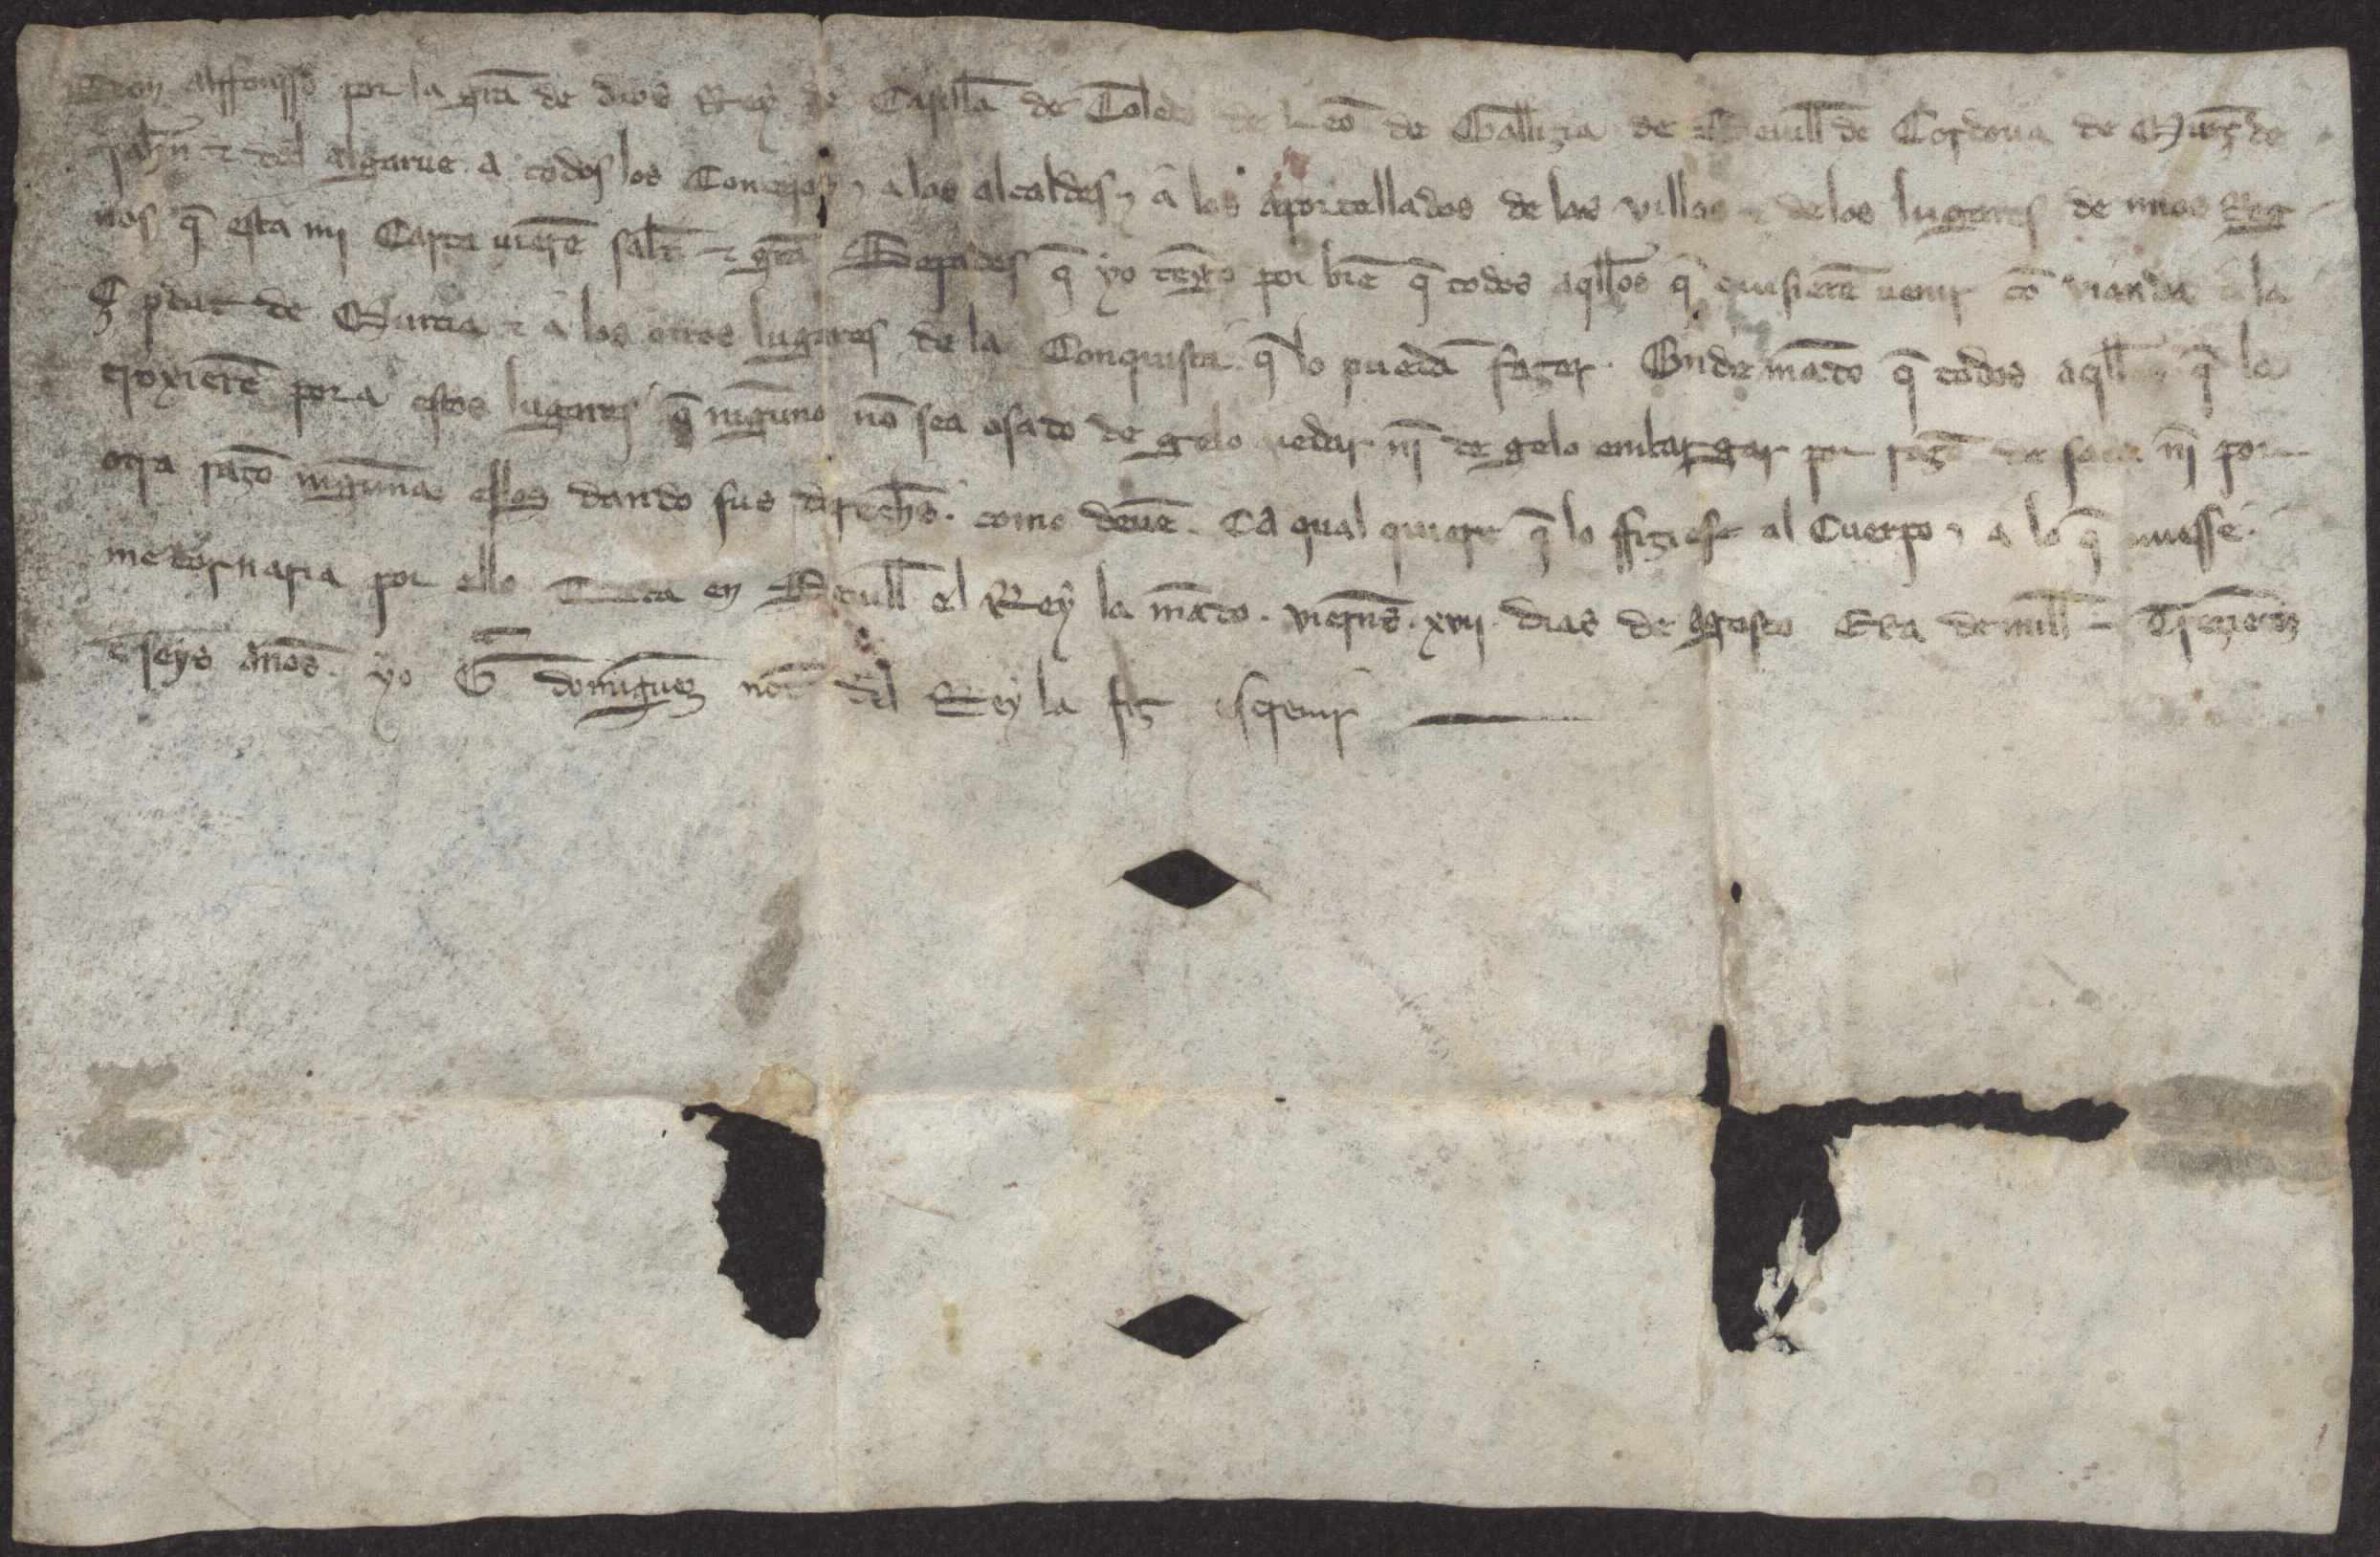 Don Alffonsso por la grã de dios Rey de Castiella de Toledo de Leõ de Gallizia de Seuill de Cordoua de Murç de
Jahñ τ del Algarue. A todos los Conceios τ a los alcaldes τ a los aportellados de las villas τ de los lugares de mios Reg-
nos q̃ esta mi Carta uierẽ salt̃ τ grã. Sepades q̃ yo tengo por biẽ q̃ todos aqllos q̃ quisierẽ uenir cõ uianda a la
Çipdat de Murcia τ a los otros lugares de la Conquista q̃ lo puedã fazer. Onde mãdo q̃ todos aqllos q̃ la
troxierẽ pora estos lugares q̃ ninguno nõ sea osado de gelo uedar nĩ de gelo embargar por razõ de saca nĩ por
otra razõ ninguna ellos dando sus derechõs. como deuẽ. Ca qual quiere q̃ lo ffiziesse al Cuerpo τ a lo q̃ ouiesse.
me tornaria por ello. Dada en Seuill el Rey la mãdo. viernẽs. xvii. dias de Agosto Era de mill τ Trezientos
τ seys ãnos. yo G̃ domĩguez not̃ del Rey la fiz escreuir